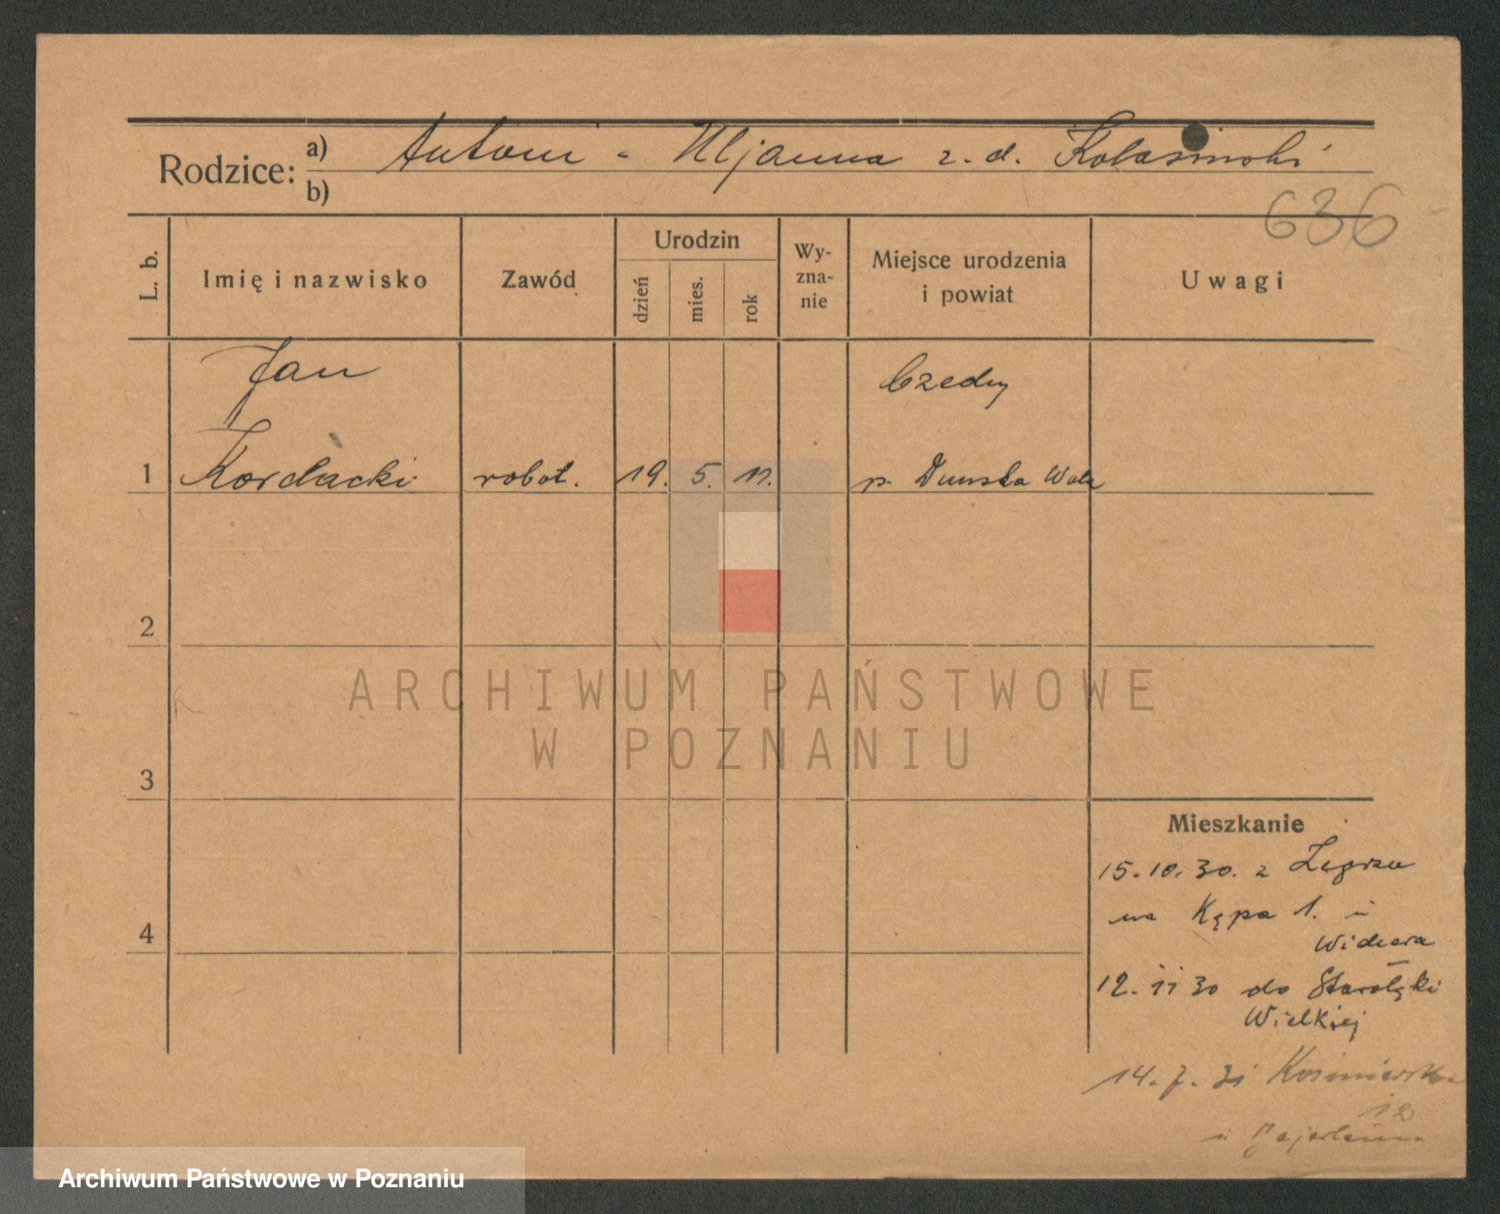 Rodzice: a) Antoni - Uljanna z. d. Kolasinski
b)
636
L. b.
Imię i nazwisko
Zawód
Urodzin
dzień
mies.
rok
Wy-
zna-
nie
Miejsce urodzenia
i powiat
Uwagi
Jan
1 Kordacki robot. 19. 5. 11.
p. Dunska Wola
2
3
4
Mieszkanie
15.10.30. z Żegrza
na Kępa 1. u
12. 11 30 do Starołęki
Wielkiej
14. 7. 31
12
u
ARCHIWUM PAŃSTWOWE
W POZNANIU
Archiwum Państwowe w Poznaniu